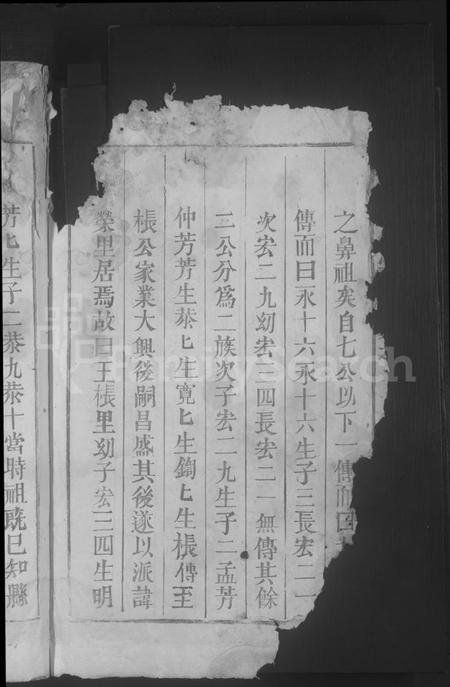 之鼻祖矣自七公以下一傳而曰
傳而曰永十六永十六生子三長宏二一
次宏二九幼宏三四長宏二一無傳其餘
二公分爲二族次子宏二九生子二孟芳
仲芳芳生恭匕生寬匕生鉤匕生棖傳至
棖公家業大興後嗣昌盛其後遂以派諱
榮里居焉故曰王棖里幼子宏三四生明
芳匕生子二恭九恭十當時祖旣巳知縣
FamilySearch